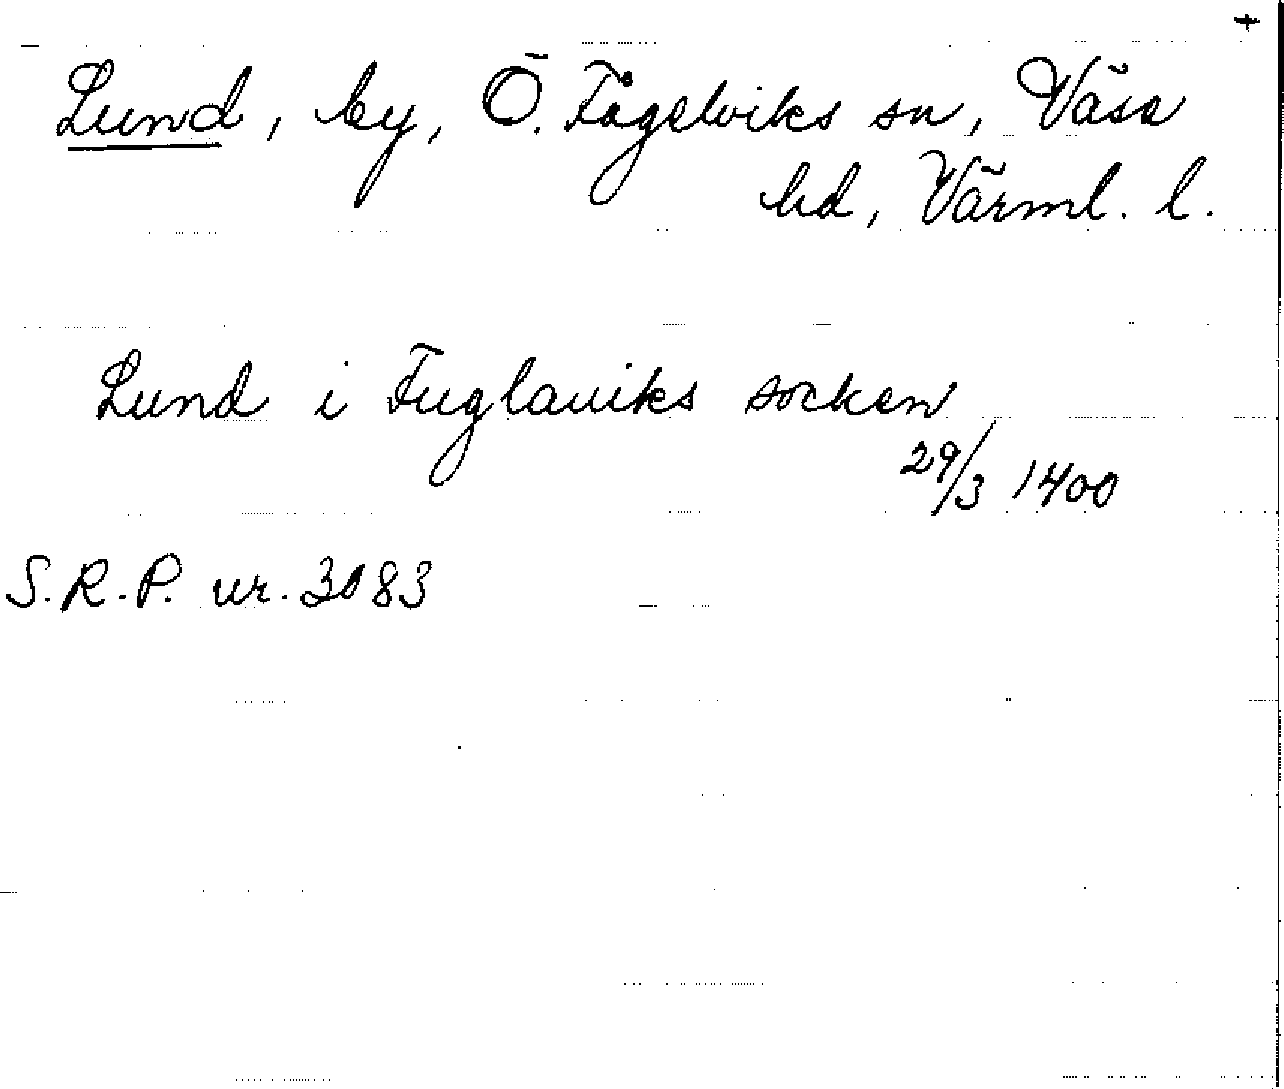 +
Lund, by, Ö. Fågelviks sn, Väse
hd, Värml. l.
Lund i Fuglauiks socken
29/3 1400
S.R.P. nr. 3083